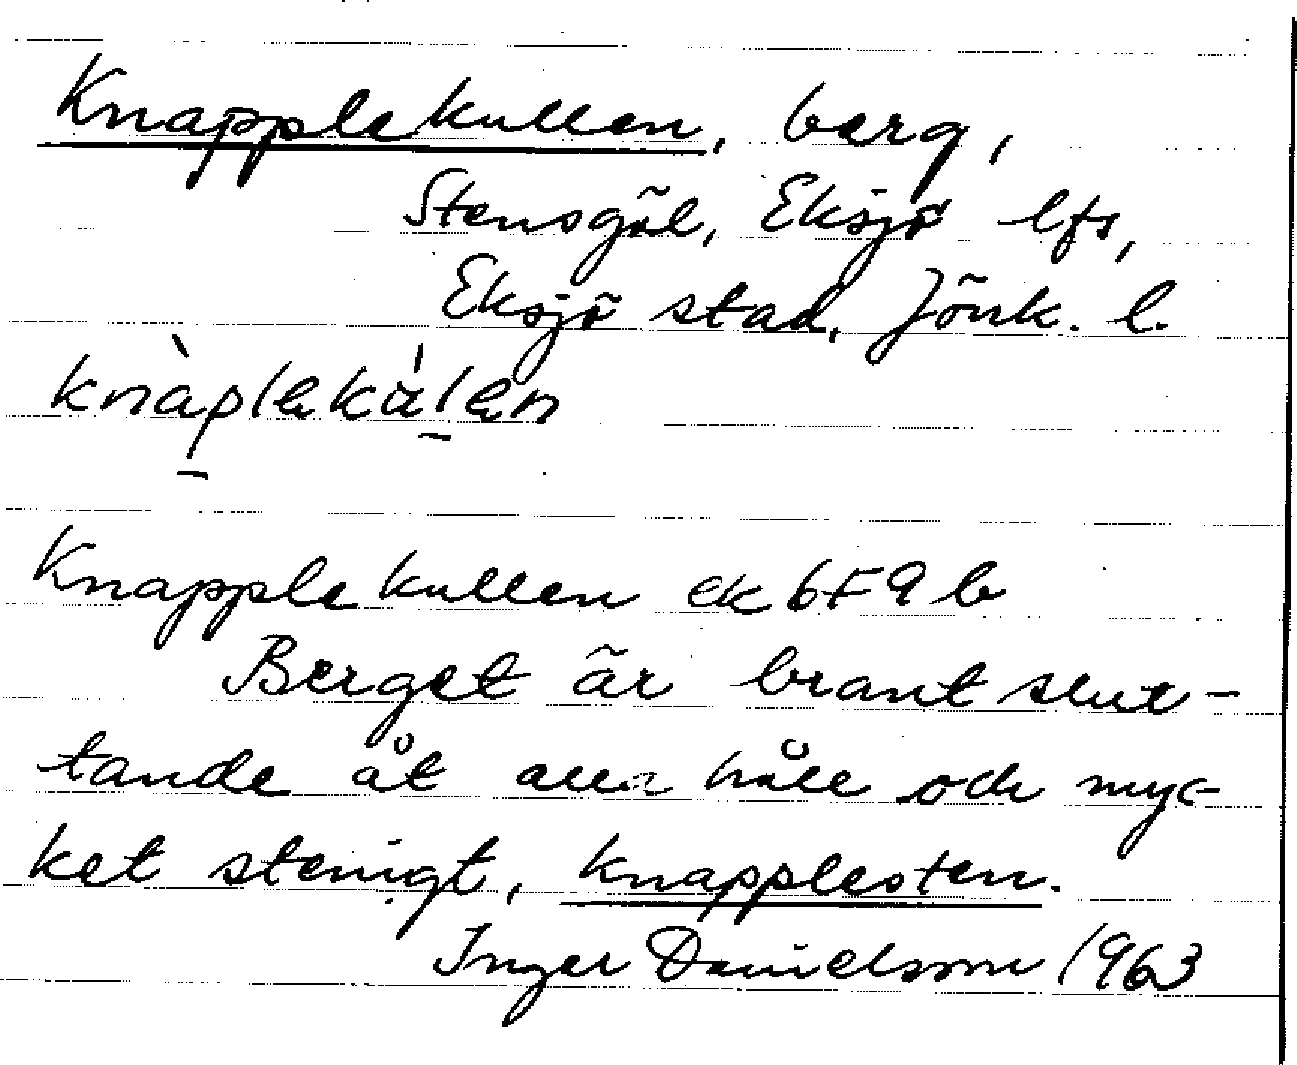 Knapplekullen, berg,
Stensgöl, Eksjö lfs,
Eksjö stad, Jönk. l.
knàplekálen
Knapplekullen ek 6F9b
Berget är brant slut-
tande åt alla håll och myc-
ket stenigt, knapplesten.
Inger Danielsson 1963